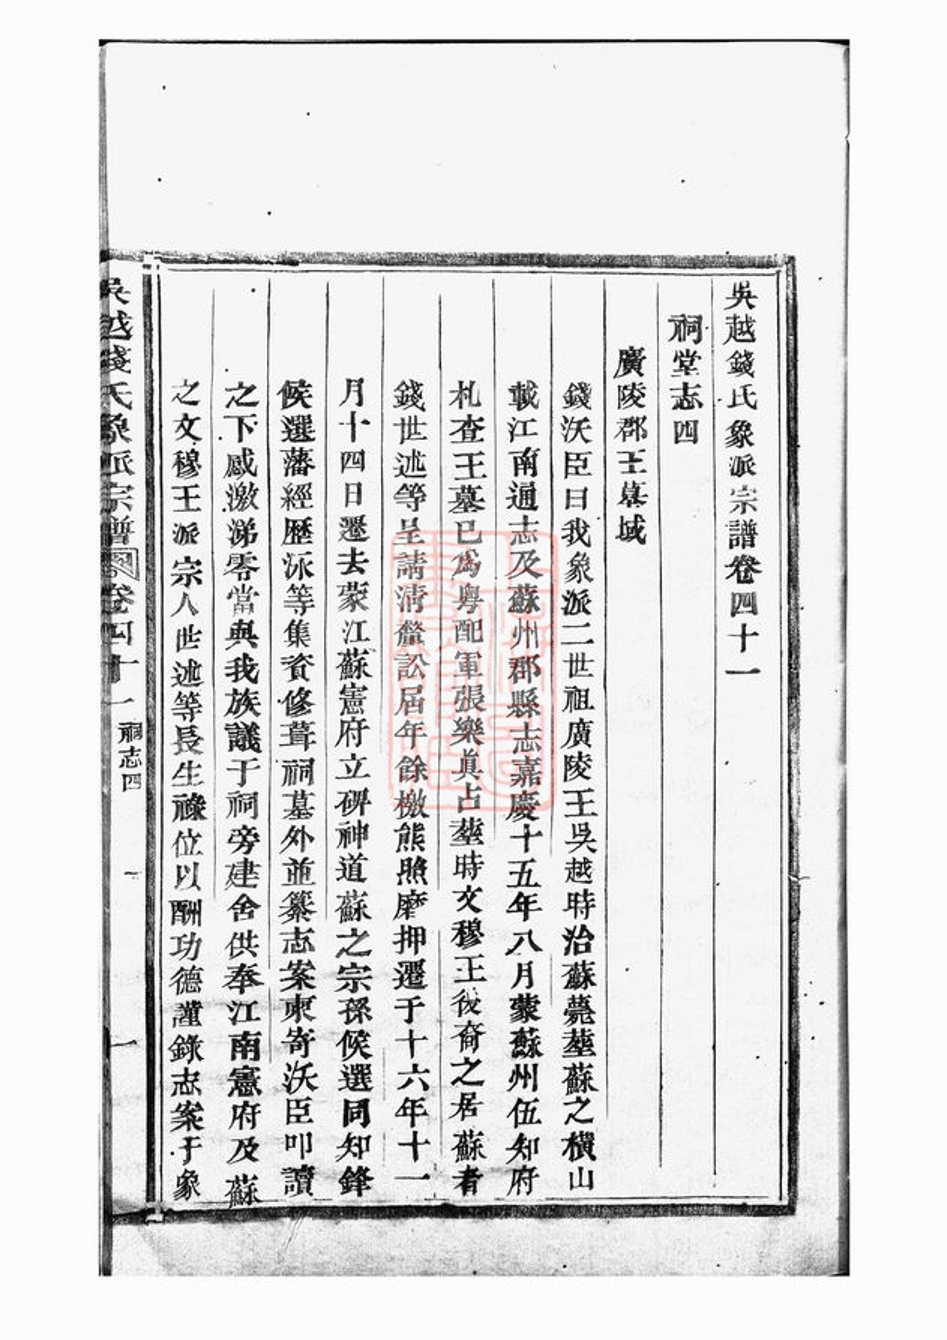 吳越錢氏象派宗譜卷四十一
祠堂志四
廣陵郡王墓域
錢沃臣曰我象派二世祖廣陵王吳越時治蘇薨塟蘇之橫山
載江南通志及蘇州郡縣志嘉慶十五年八月蒙蘇州伍知府
札查王墓已爲粤配軍張樂眞占塟時文穆王後裔之居蘇者
錢世述等呈請清釐訟屆年餘檄熊照磨押遷于十六年十一
月十四日遷去蒙江蘇憲府立碑神道蘇之宗孫候選同知鋒
候選藩經歷泳等集資修葺祠墓外並纂志案柬寄沃臣叩讀
之下感激涕零當與我族議于祠旁建舍供奉江南憲府及蘇
之文穆王派宗人世述等長生祿位以酬功德謹錄志案于象
吳越錢氏象派宗譜 卷四十一 祠志四 一